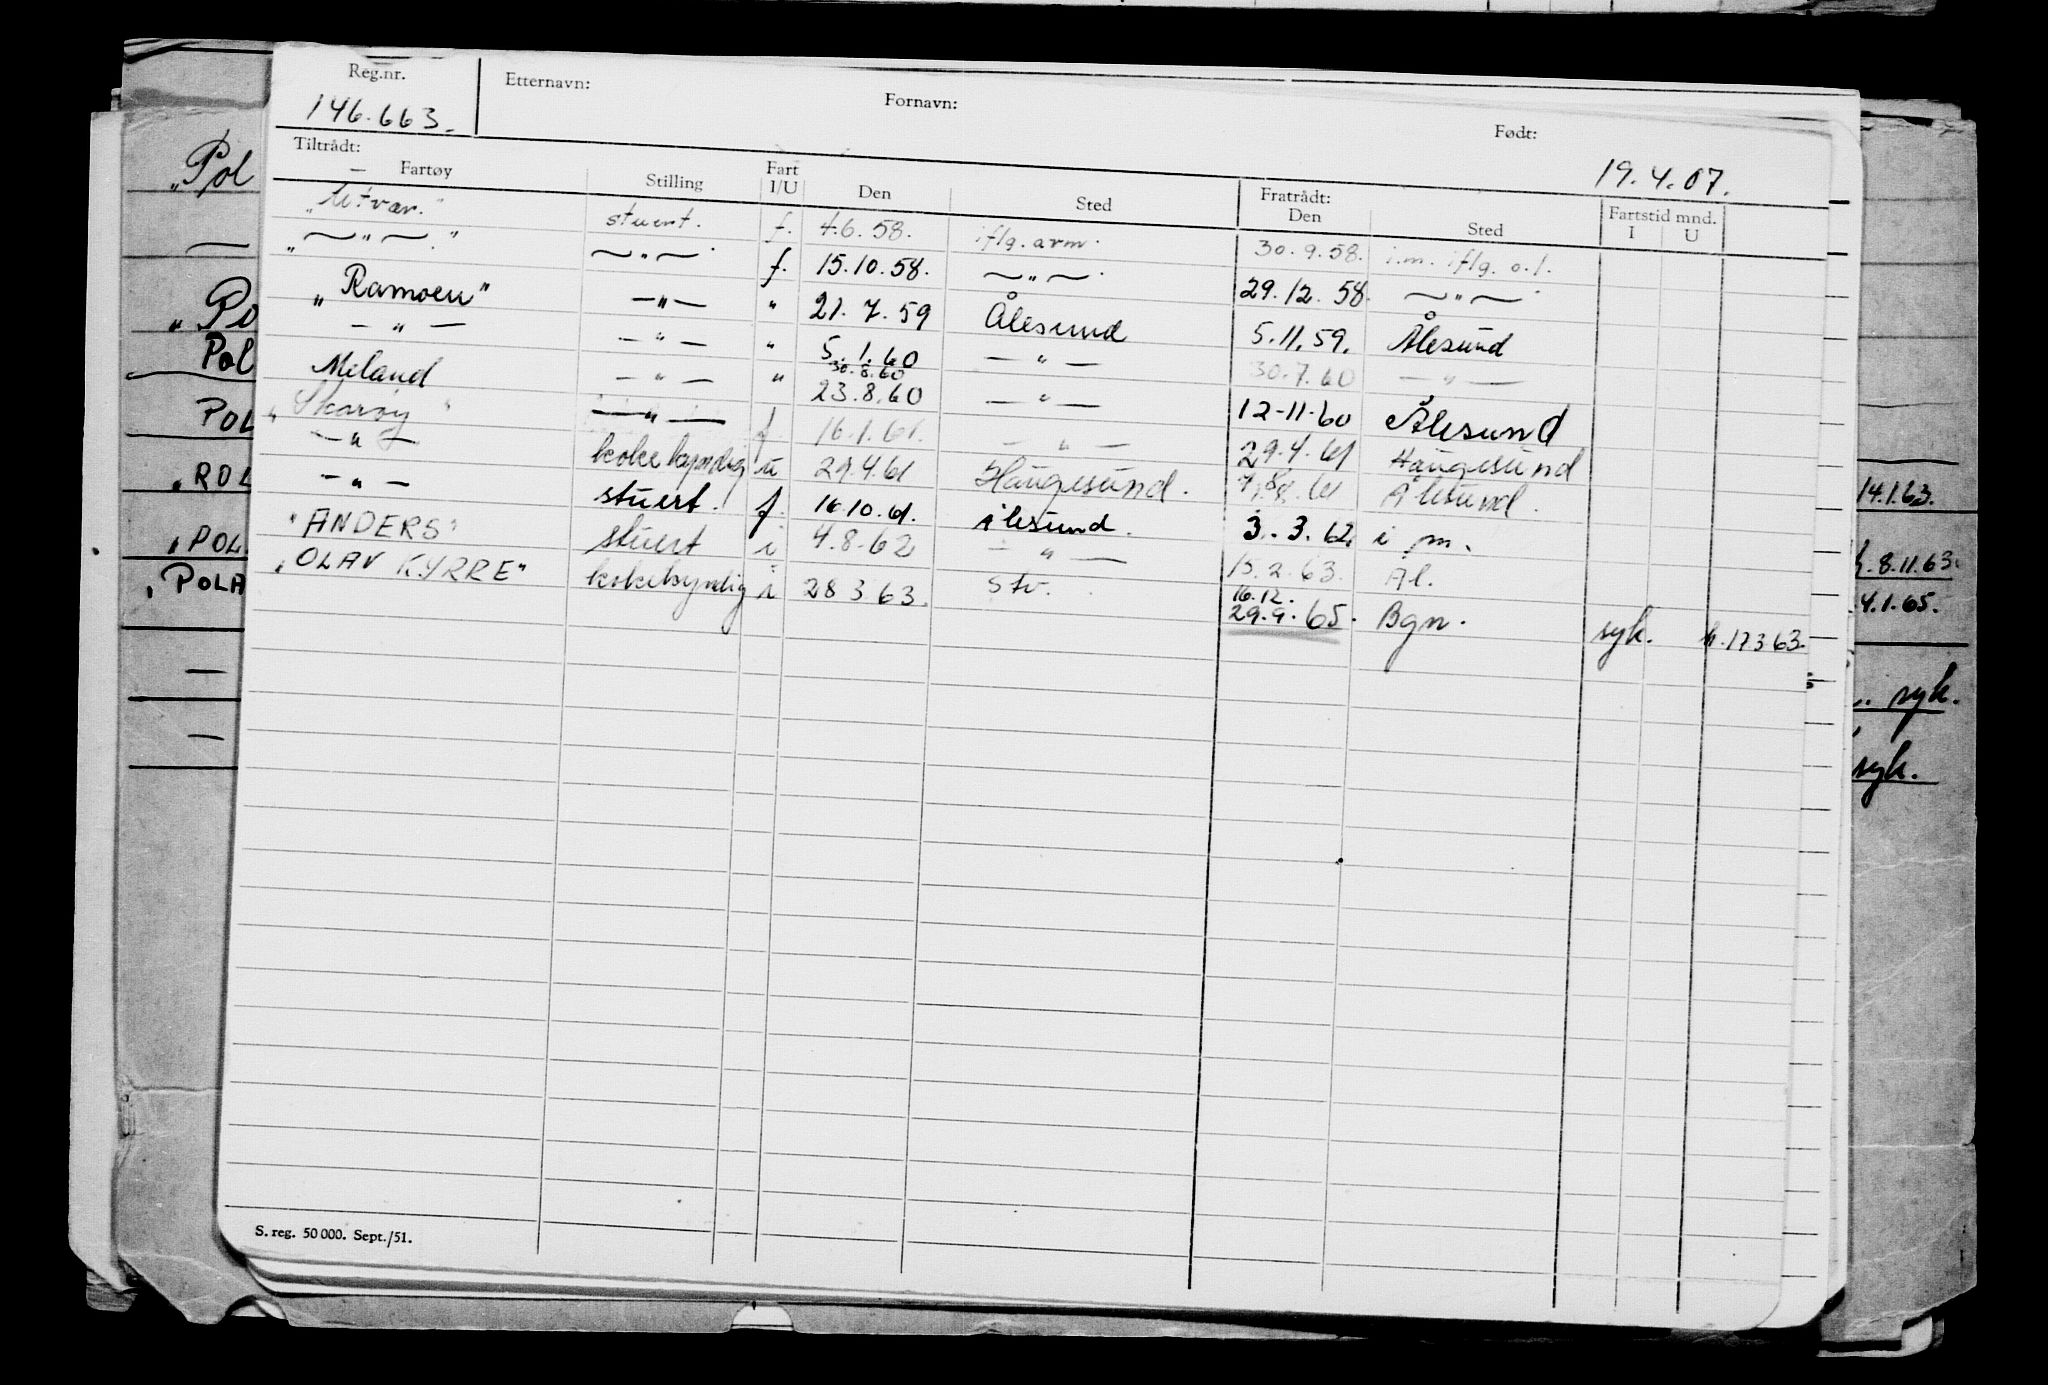 Reg.nr. Etternavn: Fornavn: Født:
146.663. 19.4.07.
Tiltrådt: Fartøy Stilling Fart I/U Den Sted Fratrådt: Den Sted Fartstid mnd. I U
"Utvær." stuert. f. 4.6.58. iflg. arm. 30.9.58. i.m. iflg. o.l.
" — " — " — " — f. 15.10.58. — " — 29.12.58. — " —
"Ramoen" — " — " 21.7.59 Ålesund 5.11.59. Ålesund
— " — — " — " 5.1.60 — " — 30.7.60 — " —
30.8.60
Meland — " — " 23.8.60 — " — 12-11-60 Ålesund
"Skarøy" — " — f 16.1.61. — " — 29.4.61 Haugesund
— " — kokekyndig u 29.4.61 Haugesund. Ålesund.
— " — stuert. f. 16.10.61. Ålesund. 3.3.62. i m.
"ANDERS" stuert i 4.8.62 — " — 15.2.63. Ål.
"OLAV KYRRE" kokekyndig i 28 3 63. Stv. 16.12.
29.9.65. Bgn. syk. h. 17 3 63.
S. reg. 50 000. Sept./51.
"Pol
—
"Po
Pol
POL
"ROL 14.1.63.
"POL 8.11.63.
"POLA 4.1.65.
— syk.
— syk.